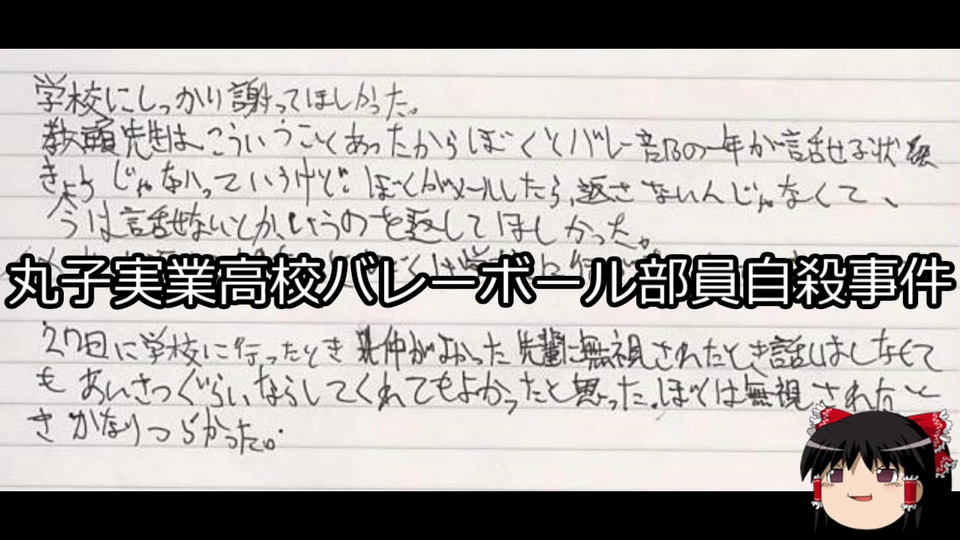 学校にしっかり謝ってほしかった。
教頭先生は、こういうことあったからぼくとバレー部の一年が話せる状態
きょうじゃないっていうけど、ぼくがメールしたら、返さないんじゃなくて、
今は話せないとかいうのを返してほしかった。
丸子実業高校バレーボール部員自殺事件
27日に学校に行ったとき 仲がよかった 先輩に無視されたとき話はしなくて
も あいさつぐらいならしてくれてもよかったと思った。ぼくは無視されたと
き かなりつらかった。